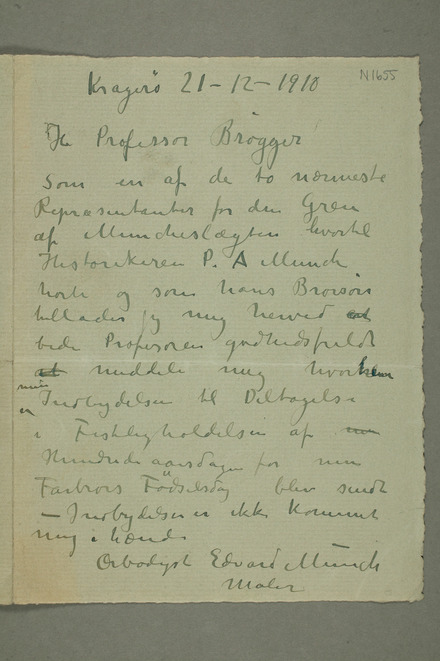 N1655
Kragerø 21–12–1910
Hr Professor Brøgger
Som en af de to nærmeste
Repræsentanter for den Gren
af Munchslægten hvortil
Historikeren P. A Munch
hørte og som hans Brorsøn
tillader jeg mig herved at
bede Profesoren godhedsfuldt
at meddele mig hvorhen
min
Indbydelsen til Deltagelse
i Festligholdelsen af
Hundredeaarsdagen for min
Farbrors Fødselsdag blev sendt
– Indbydelsen er ikke kommet
mig i hænde
Ærbødigst Edvard Munch
Maler